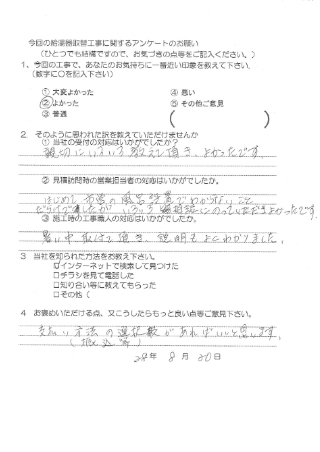 今回の給湯器取替工事に関するアンケートのお願い
（ひとつでも結構ですので、お気づきの点等をご記入ください。）
1、今回の工事で、あなたのお気持ちに一番近い印象を教えて下さい。
（数字に○を記入下さい）
① 大変よかった ④ 悪い
② よかった ⑤ その他ご意見
③ 普通 （ ）
2 そのように思われた訳を教えていただけませんか
① 当社の受付の対応はいかがでしたか？
親切にいろいろ教えて頂き、よかったです。
② 見積訪問時の営業担当者の対応はいかがでしたか。
はじめて の風呂設置でわからないこと
いろいろ相談にのっていただきよかったです。
③ 施工時の工事職人の対応はいかがでしたか？
暑い中取付て頂き、説明もよくわかりました。
3 当社を知られた方法をお教え下さい。
☑インターネットで検索して見つけた
□チラシを見て電話した
□知り合い等に教えてもらった
□その他（
4 お褒めいただける点、又こうしたらもっと良い点等ご意見下さい。
支払い方法の選択数があればいいと思います。
（振込等）
28年 8月 20日